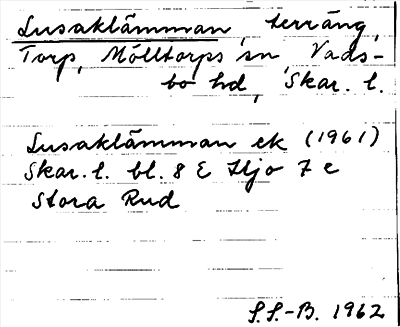 Lusaklämman, terräng,
Torp, Mölltorps sn, Vads-
bo hd, Skar. l.
Lusaklämman ek (1961)
Skar. l. bl. 8 E Hjo 7 e
Stora Rud
S.S.-B. 1962